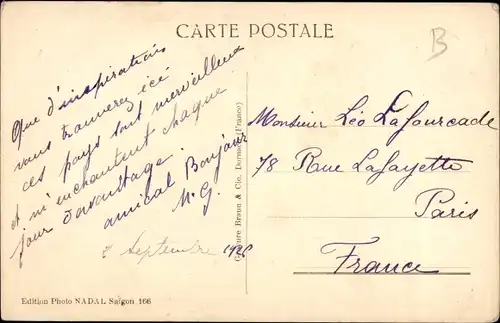 CARTE POSTALE
B
Que d'inspirations
vous trouverez ici
ces pays sont merveilleux
et m'enchantent chaque
jour davantage.
amical Bonjour
M. G.
2 Septembre 1926
Braun & Cie, (France)
Monsieur Léo Lafourcade
78 Rue Lafayette
Paris
France
Edition Photo NADAL Saïgon 166